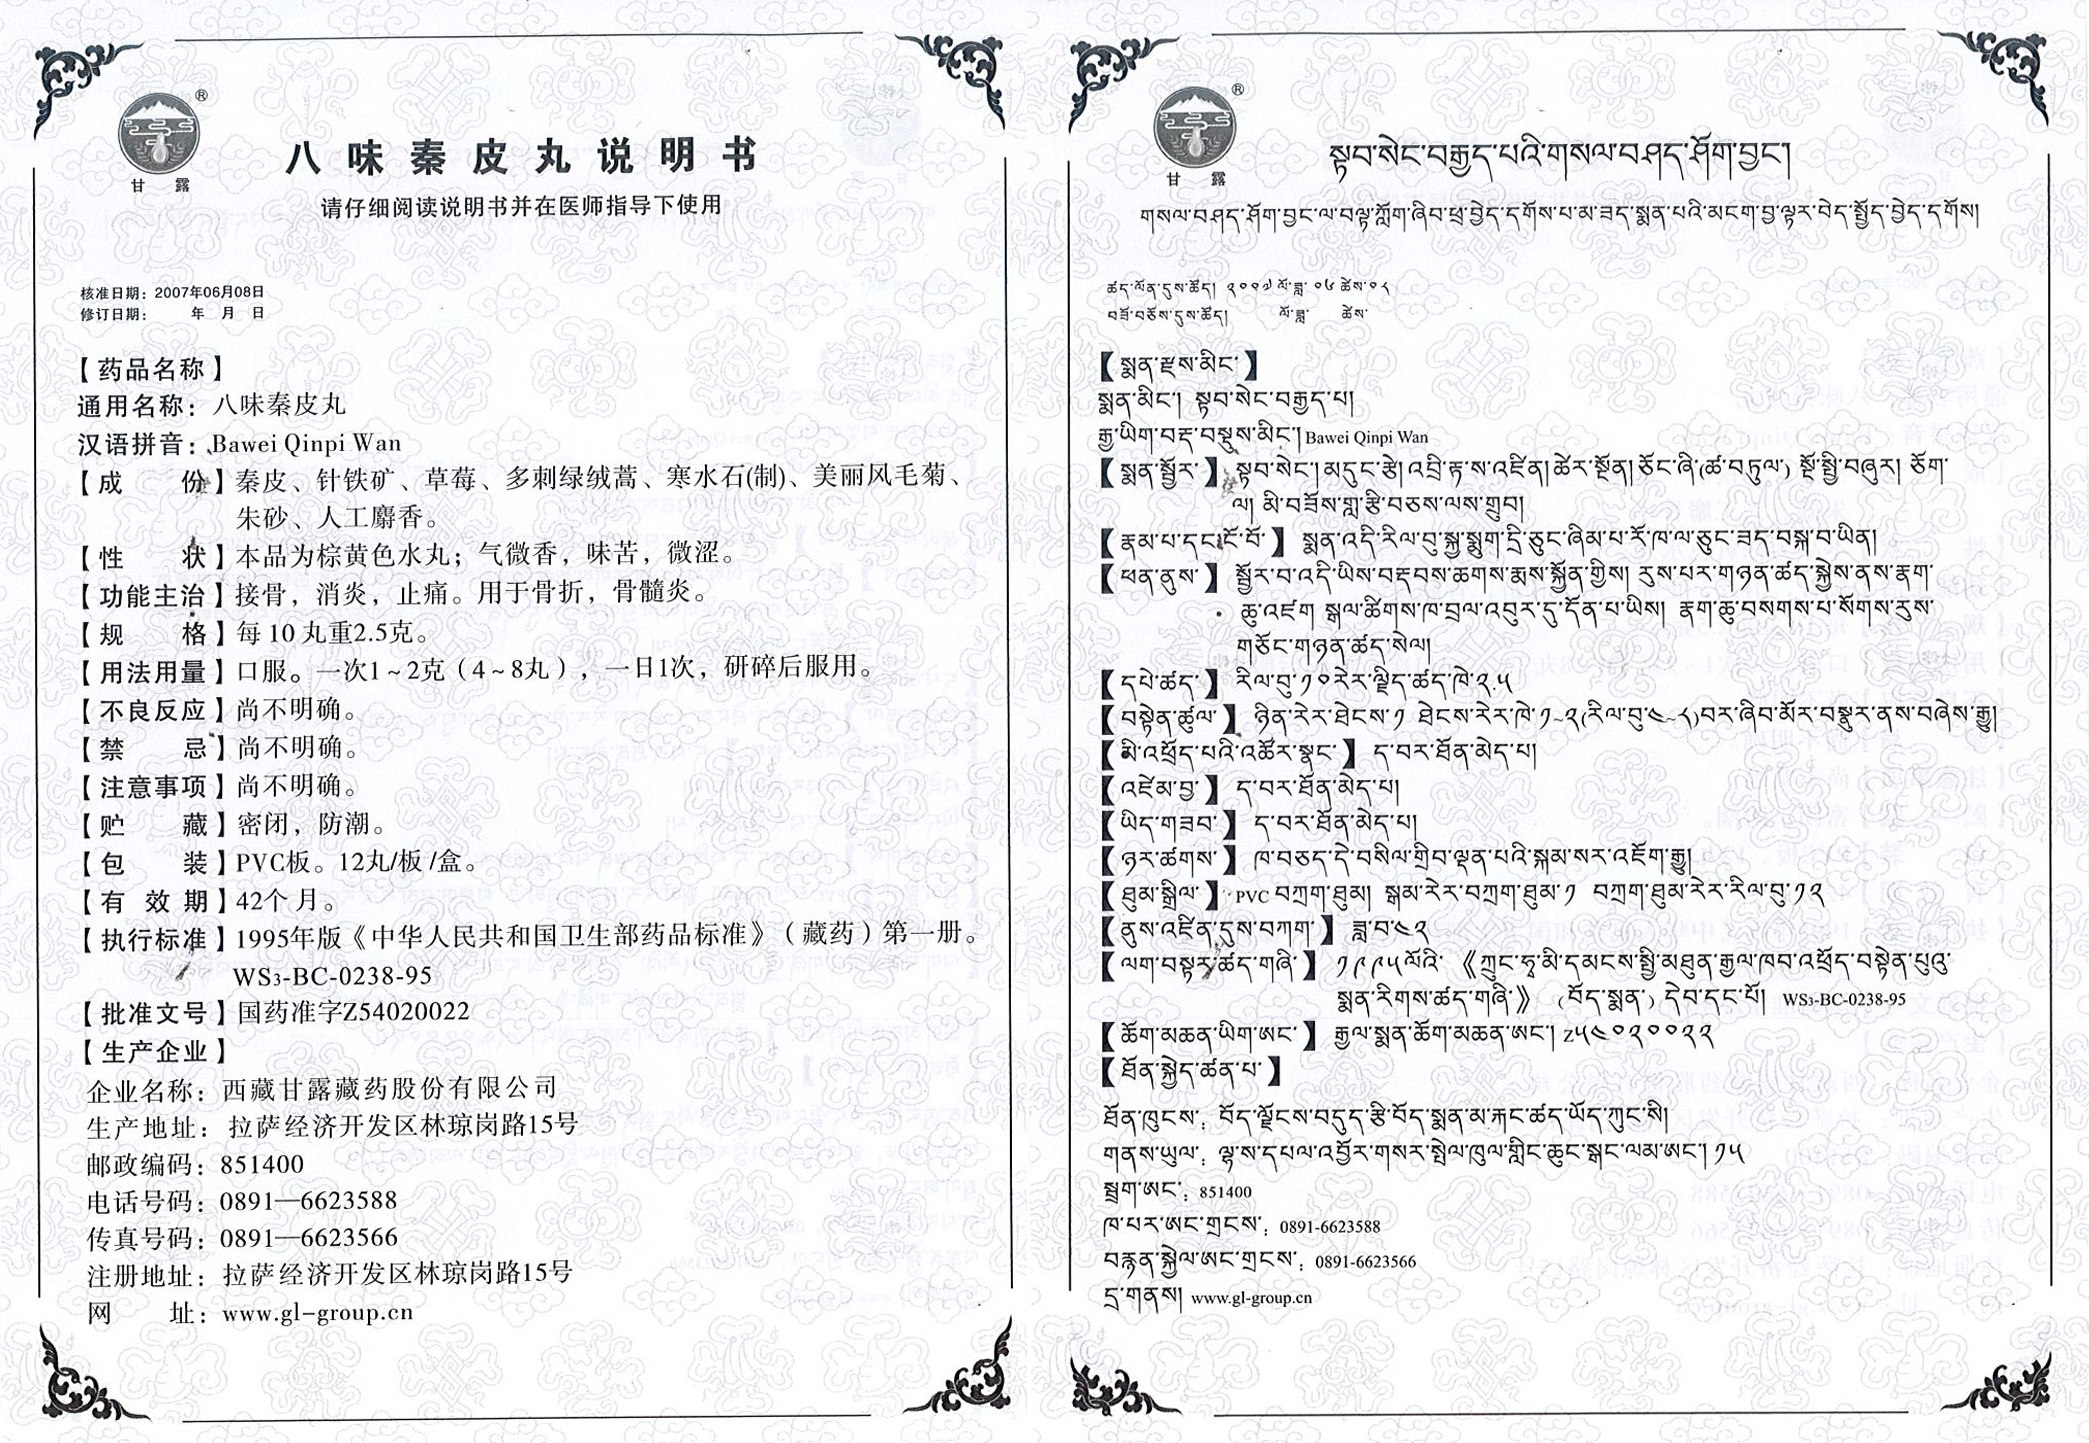 ®
甘 露
八味秦皮丸说明书
请仔细阅读说明书并在医师指导下使用
核准日期：2007年06月08日
修订日期： 年 月 日
【药品名称】
通用名称：八味秦皮丸
汉语拼音：Bawei Qinpi Wan
【成 份】秦皮、针铁矿、草莓、多刺绿绒蒿、寒水石(制)、美丽风毛菊、
朱砂、人工麝香。
【性 状】本品为棕黄色水丸；气微香，味苦，微涩。
【功能主治】接骨，消炎，止痛。用于骨折，骨髓炎。
【规 格】每 10 丸重2.5克。
【用法用量】口服。一次1~2克（4~8丸），一日1次，研碎后服用。
【不良反应】尚不明确。
【禁 忌】尚不明确。
【注意事项】尚不明确。
【贮 藏】密闭，防潮。
【包 装】PVC板。12丸/板 /盒。
【有 效 期】42个 月。
【执行标准】1995年版《中华人民共和国卫生部药品标准》（藏药）第一册。
WS3-BC-0238-95
【批准文号】国药准字Z54020022
【生产企业】
企业名称：西藏甘露藏药股份有限公司
生产地址：拉萨经济开发区林琼岗路15号
邮政编码：851400
电话号码：0891—6623588
传真号码：0891—6623566
注册地址：拉萨经济开发区林琼岗路15号
网 址：www.gl-group.cn
®
甘 露
སྟབ་སེང་བརྒྱད་པའི་གསལ་བཤད་ཤོག་བྱང།
གསལ་བཤད་ཤོག་བྱང་ལ་བལྟ་ཀློག་ཞིབ་ཕྲ་བྱེད་དགོས་པ་མ་ཟད་སྨན་པའི་མངག་བྱ་ལྟར་བེད་སྤྱོད་བྱེད་དགོས།
ཚད་ལོན་དུས་ཚོད། ༢༠༠༧ ལོ་ཟླ་ ༠༦ ཚེས་༠༨
བཟོ་བཅོས་དུས་ཚོད། ལོ་ཟླ་ ཚེས་
【སྨན་རྫས་མིང་】
སྨན་མིང་། སྟབ་སེང་བརྒྱད་པ།
རྒྱ་ཡིག་བརྡ་བསྡུས་མིང་། Bawei Qinpi Wan
【སྨན་སྦྱོར་】སྟབ་སེང་། མདུང་རྩེ། འབྲི་རྟ་ས་འཛིན། ཚེར་སྔོན། ཅོང་ཞི་(ཚ་བཏུལ་) སྔོ་སྤྱི་བཞུར། ཅོག་
ལ། མི་བཟོས་གླ་རྩི་བཅས་ལས་གྲུབ།
【རྣམ་པ་དང་ངོ་བོ་】སྨན་འདི་རིལ་བུ་སྐྱ་སྨུག་དྲི་ཅུང་ཞིམ་པ་རོ་ཁ་ལ་ཅུང་ཟད་བསྐ་བ་ཡིན།
【ཕན་ནུས་】སྦྱོར་བ་འདི་ཡིས་བརྡབས་ཆགས་རྨས་སྐྱོན་གྱིས། རུས་པར་གཉན་ཚད་སྐྱེས་ནས་རྣག་
ཆུ་འཛག སྒལ་ཚིགས་ཁ་བྲལ་འབུར་དུ་དོན་པ་ཡིས། རྣག་ཆུ་བསགས་པ་སོགས་རུས་
གཅོང་གཉན་ཚད་སེལ།
【དཔེ་ཚད་】རིལ་བུ་༡༠རེར་ལྗིད་ཚད་ཁེ་༢.༥
【བསྟེན་ཚུལ་】ཉིན་རེར་ཐེངས་༡ ཐེངས་རེར་ཁེ་༡~༢(རིལ་བུ་༤~༨)བར་ཞིབ་མོར་བསྣུར་ནས་བཞེས་རྒྱུ།
【མི་འཕྲོད་པའི་འཚོར་སྣང་】ད་བར་ཐོན་མེད་པ།
【འཛེམ་བྱ་】ད་བར་ཐོན་མེད་པ།
【ཡིད་གཟབ་】ད་བར་ཐོན་མེད་པ།
【ཉར་ཚགས་】ཁ་བཅད་དེ་བསིལ་གྲིབ་ལྡན་པའི་སྐམ་སར་འཇོག་རྒྱུ།
【ཐུམ་སྒྲིལ་】PVC བཀྲག་ཐུམ། སྒམ་རེར་བཀྲག་ཐུམ་༡ བཀྲག་ཐུམ་རེར་རིལ་བུ་༡༢
【ནུས་འཛིན་དུས་བཀག་】ཟླ་བ་༤༢
【ལག་བསྟར་ཚད་གཞི་】༡༩༩༥ལོའི་ 《ཀྲུང་ཧྭ་མི་དམངས་སྤྱི་མཐུན་རྒྱལ་ཁབ་འཕྲོད་བསྟེན་པུའུ་
སྨན་རིགས་ཚད་གཞི་》 (བོད་སྨན་) དེབ་དང་པོ། WS3-BC-0238-95
【ཆོག་མཆན་ཡིག་ཨང་】རྒྱལ་སྨན་ཆོག་མཆན་ཨང་། Z༥༤༠༢༠༠༢༢
【ཐོན་སྐྱེད་ཚན་པ་】
ཐོན་ཁུངས་: བོད་ལྗོངས་བདུད་རྩི་བོད་སྨན་མ་རྐང་ཚད་ཡོད་ཀུང་སི།
གནས་ཡུལ་: ལྷ་ས་དཔལ་འབྱོར་གསར་སྤེལ་ཁུལ་གླིང་ཆུང་སྒང་ལམ་ཨང་། ༡༥
སྦྲག་ཨང་: 851400
ཁ་པར་ཨང་གྲངས་: 0891-6623588
བརྙན་སྐྱེལ་ཨང་གྲངས་: 0891-6623566
དྲ་གནས། www.gl-group.cn